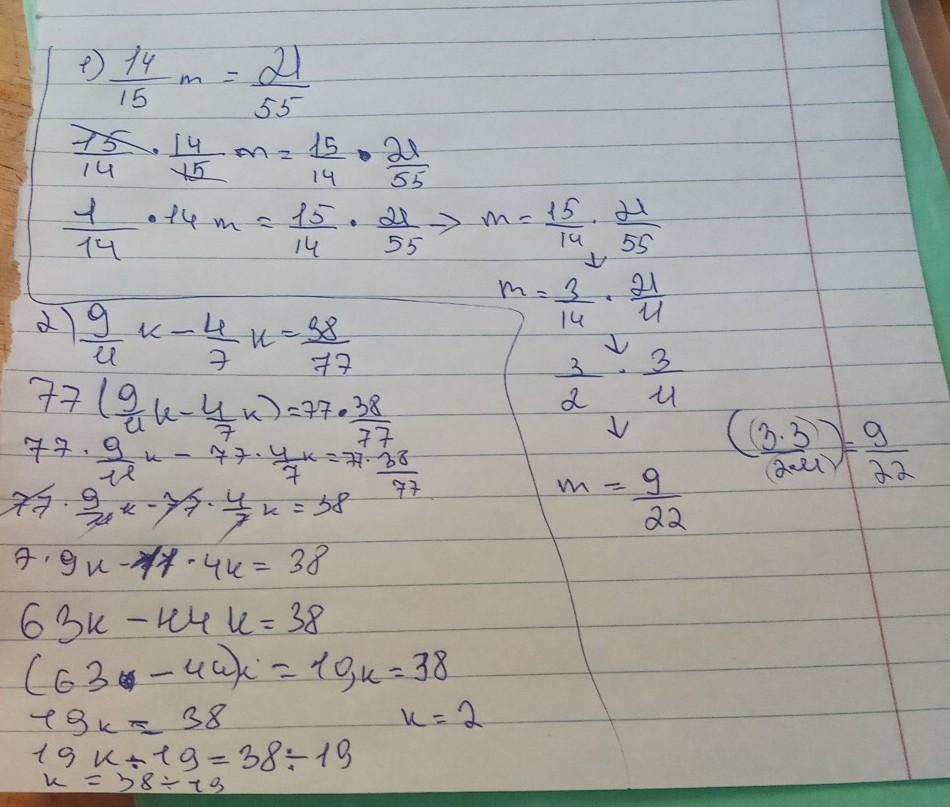 1) 14/15 m = 21/55
15/14 · 14/15 m = 15/14 · 21/55
1/14 · 14 m = 15/14 · 21/55 → m = 15/14 · 21/55
↓
m = 3/14 · 21/11
↓
3/2 · 3/11
↓
m = 9/22
((3·3)/(2·11)) = 9/22
2) 9/11 k - 4/7 k = 38/77
77 (9/11 k - 4/7 k) = 77 · 38/77
77 · 9/11 k - 77 · 4/7 k = 77 · 38/77
77 · 9/11 k - 77 · 4/7 k = 38
7 · 9k - 11 · 4k = 38
63k - 44k = 38
(63 - 44)k = 19k = 38
19k = 38
k = 2
19k ÷ 19 = 38 ÷ 19
k = 38 ÷ 19